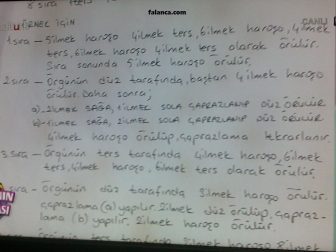 falanca.com
6 sıra
ÖRNEK İÇİN
CANLI
1.sıra - 5ilmek haroşo 4ilmek ters, 6ilmek haroşo, 4ilmek
ters, 6ilmek haroşo 4ilmek ters olarak örülür.
Sıra sonunda 5ilmek haroşo örülür.
2.sıra - Örgünün düz tarafında, baştan 4ilmek haroşo
örülür. Daha sonra;
a). 2İLMEK SAĞA, 1İLMEK SOLA ÇAPRAZLANIP DÜZ ÖRÜLÜR
b). 1İLMEK SAĞA, 2İLMEK SOLA ÇAPRAZLANIP DÜZ ÖRÜLÜR
4ilmek haroşo örülüp, çaprazlama tekrarlanır.
3.sıra - Örgünün ters tarafında 4ilmek haroşo, 6ilmek
ters, 4ilmek haroşo, 6ilmek ters olarak örülür.
sıra - Örgünün düz tarafında 3ilmek haroşo örülür.
çaprazlama (a) yapılır. 2ilmek düz örülüp, çapraz-
lama (b) yapılır. 2ilmek haroşo örülür.
ters tarafında 3ilmek haroşo 8ilmek